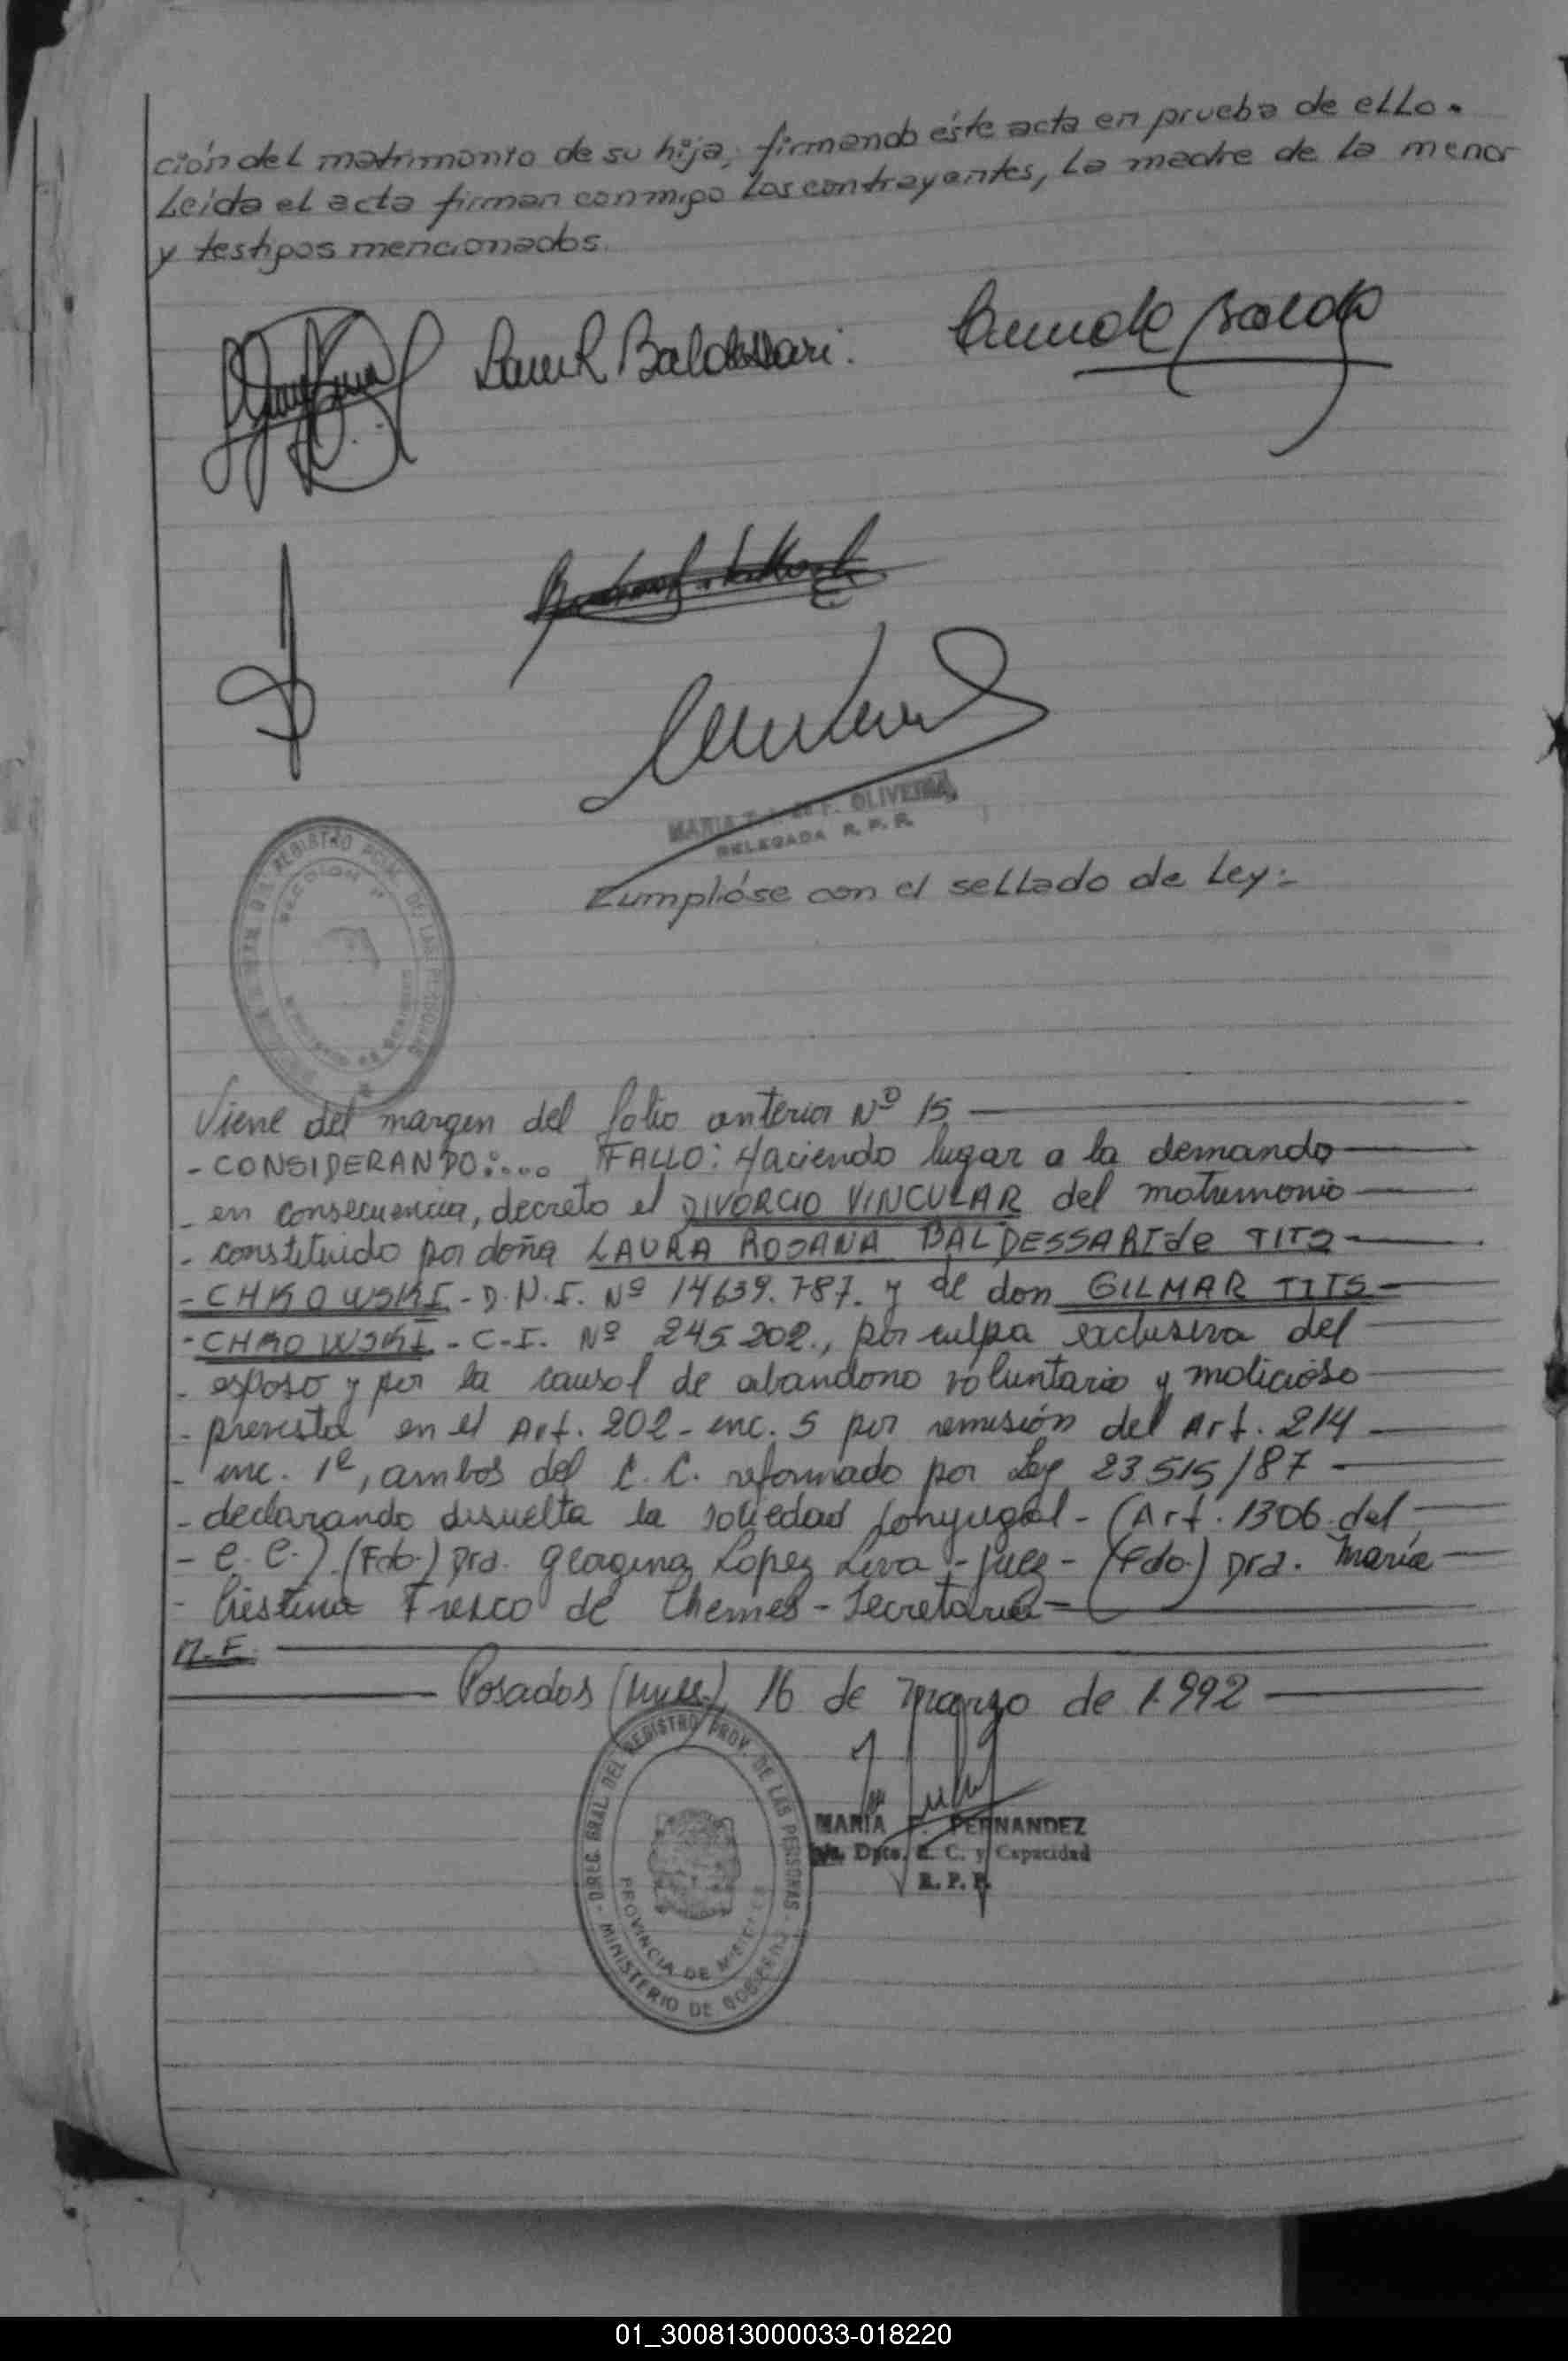 ción del matrimonio de su hija, firmando éste acta en prueba de ello.
Leída el acta firman conmigo los contrayentes, la madre de la menor
y testigos mencionados.
Laura R Baldessari.
MARIA F. OLIVEIRA
DELEGADA R. P. P.
Cumplióse con el sellado de Ley:-
REGISTRO PCIAL. DE LAS PERSONAS
Viene del margen del folio anterior Nº 15
- CONSIDERANDO:... FALLO: Haciendo lugar a la demanda
- en consecuencia, decreto el DIVORCIO VINCULAR del matrimonio
- constituido por doña LAURA ROSANA BALDESSARI de TITS
- CHKOWSKI - D.N.I. Nº 14639.787. y de don GILMAR TITS-
- CHKOWSKI. - C.I. Nº 245.202., por culpa exclusiva del
- esposo y por la causal de abandono voluntario y malicioso
- prevista en el Art. 202 - inc. 5 por remisión del Art. 214
- inc. 1º, ambos del C.C. reformado por Ley 23515/87 -
- declarando disuelta la sociedad conyugal - (Art. 1306 del
- C.C.). (Fdo.) Dra. Georgina Lopez Liva - Juez - (Fdo.) Dra. María
- Cristina Fresco de Themes - Secretaria -
M.F.
Posadas (Mnes.), 16 de Marzo de 1.992
MARIA F. FERNANDEZ
Dpto. E. C. y Capacidad
R. P. P.
DIREC. GRAL. DEL REGISTRO PROV. DE LAS PERSONAS
PROVINCIA DE MISIONES
MINISTERIO DE GOBIERNO
01_300813000033-018220